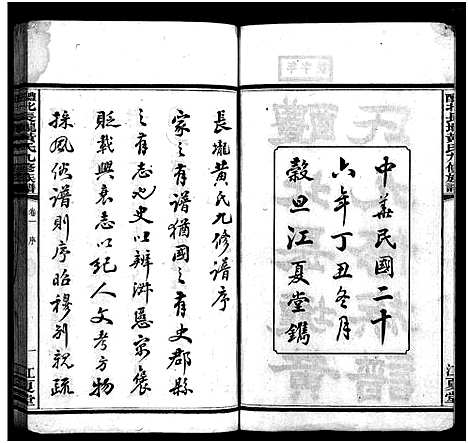 醴北長壠黃氏九修族譜
中華民國二十
六年丁丑冬月
穀旦江夏堂鐫
江夏堂
長壠黃氏九修譜序
家之有譜猶國之有史郡縣
之有志也史以辨淑慝寓褒
貶載興衰志以紀人文考方物
採風俗譜則序昭穆別親疏
醴北長壠黃氏九修族譜
卷一 序
一
江夏堂